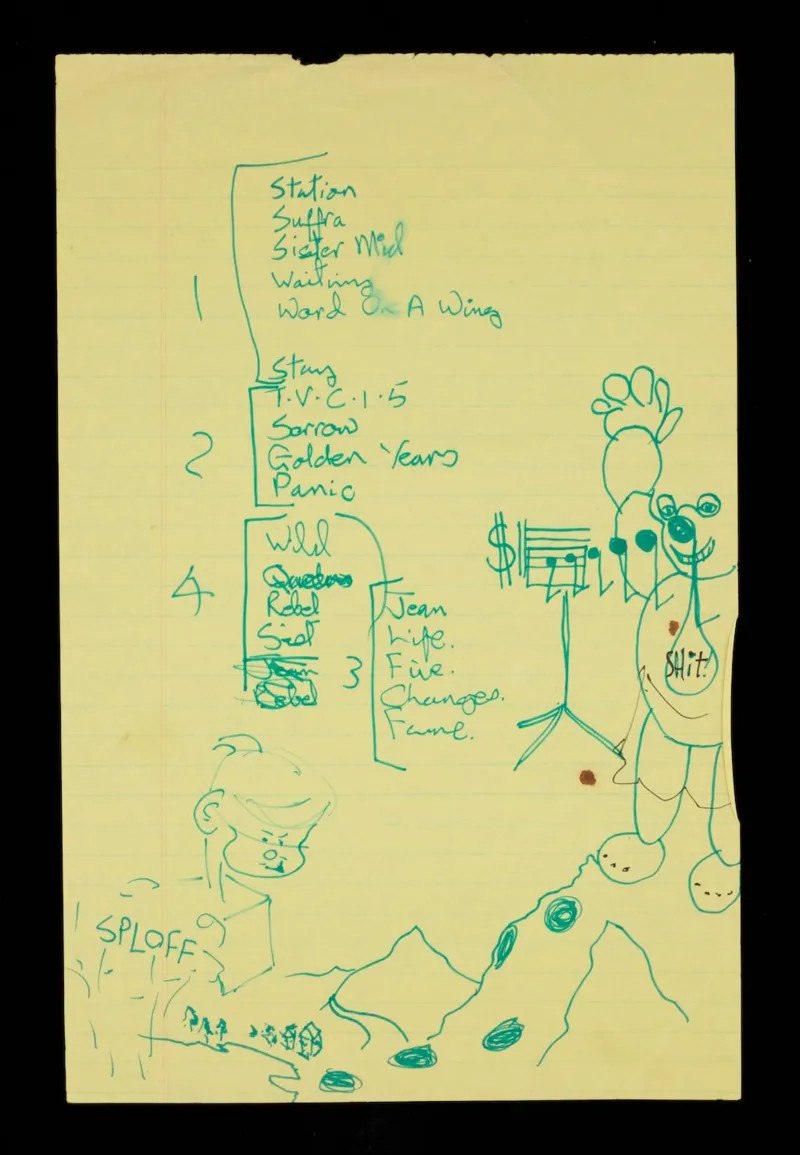 1
Station
Suffra
Sister Mid
Waiting
Word On A Wing
Stay
2
T.V.C.1.5
Sorrow
Golden Years
Panic
4
Wild
Rebel
Jean
Rebel
3
Jean
Life.
Five.
Changes.
Fame.
$
SHit!
SPLOFF